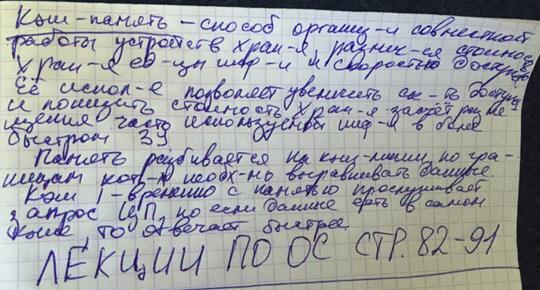 Кэш-память – способ организ-и совместной
работы устройств хран-я, различ-ся стоимо
хран-я ед-цы инф-и и скоростью доступа
Её испол-е позволяет увеличить ск-ть доступа
и понизить стоимость хран-я за счёт разме
щения часто используемой инф-и в более
быстром ЗУ
Память разбивается на кэш-линии, по гра-
ницам кот-х необх-мо выравнивать данные.
Кэш 1-временно с памятью прослушивает
запрос ЦП, но если данные есть в самом
кэше то отвечает быстрее.
ЛЕКЦИИ ПО ОС СТР. 82-91